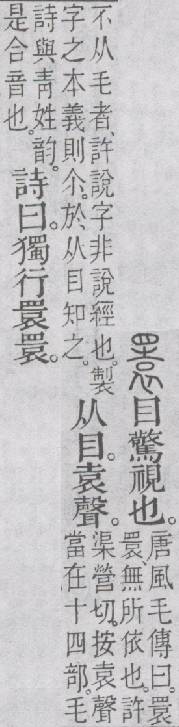 瞏目驚視也。
唐風毛傳曰。瞏
瞏、無所依也。許
不从毛者、許說字非說經也。製
字之本義則尒。於从目知之。
从目。袁聲。
渠營切。按袁聲
當在十四部。毛
詩與青姓韵。
是合音也。
詩曰。獨行瞏瞏。